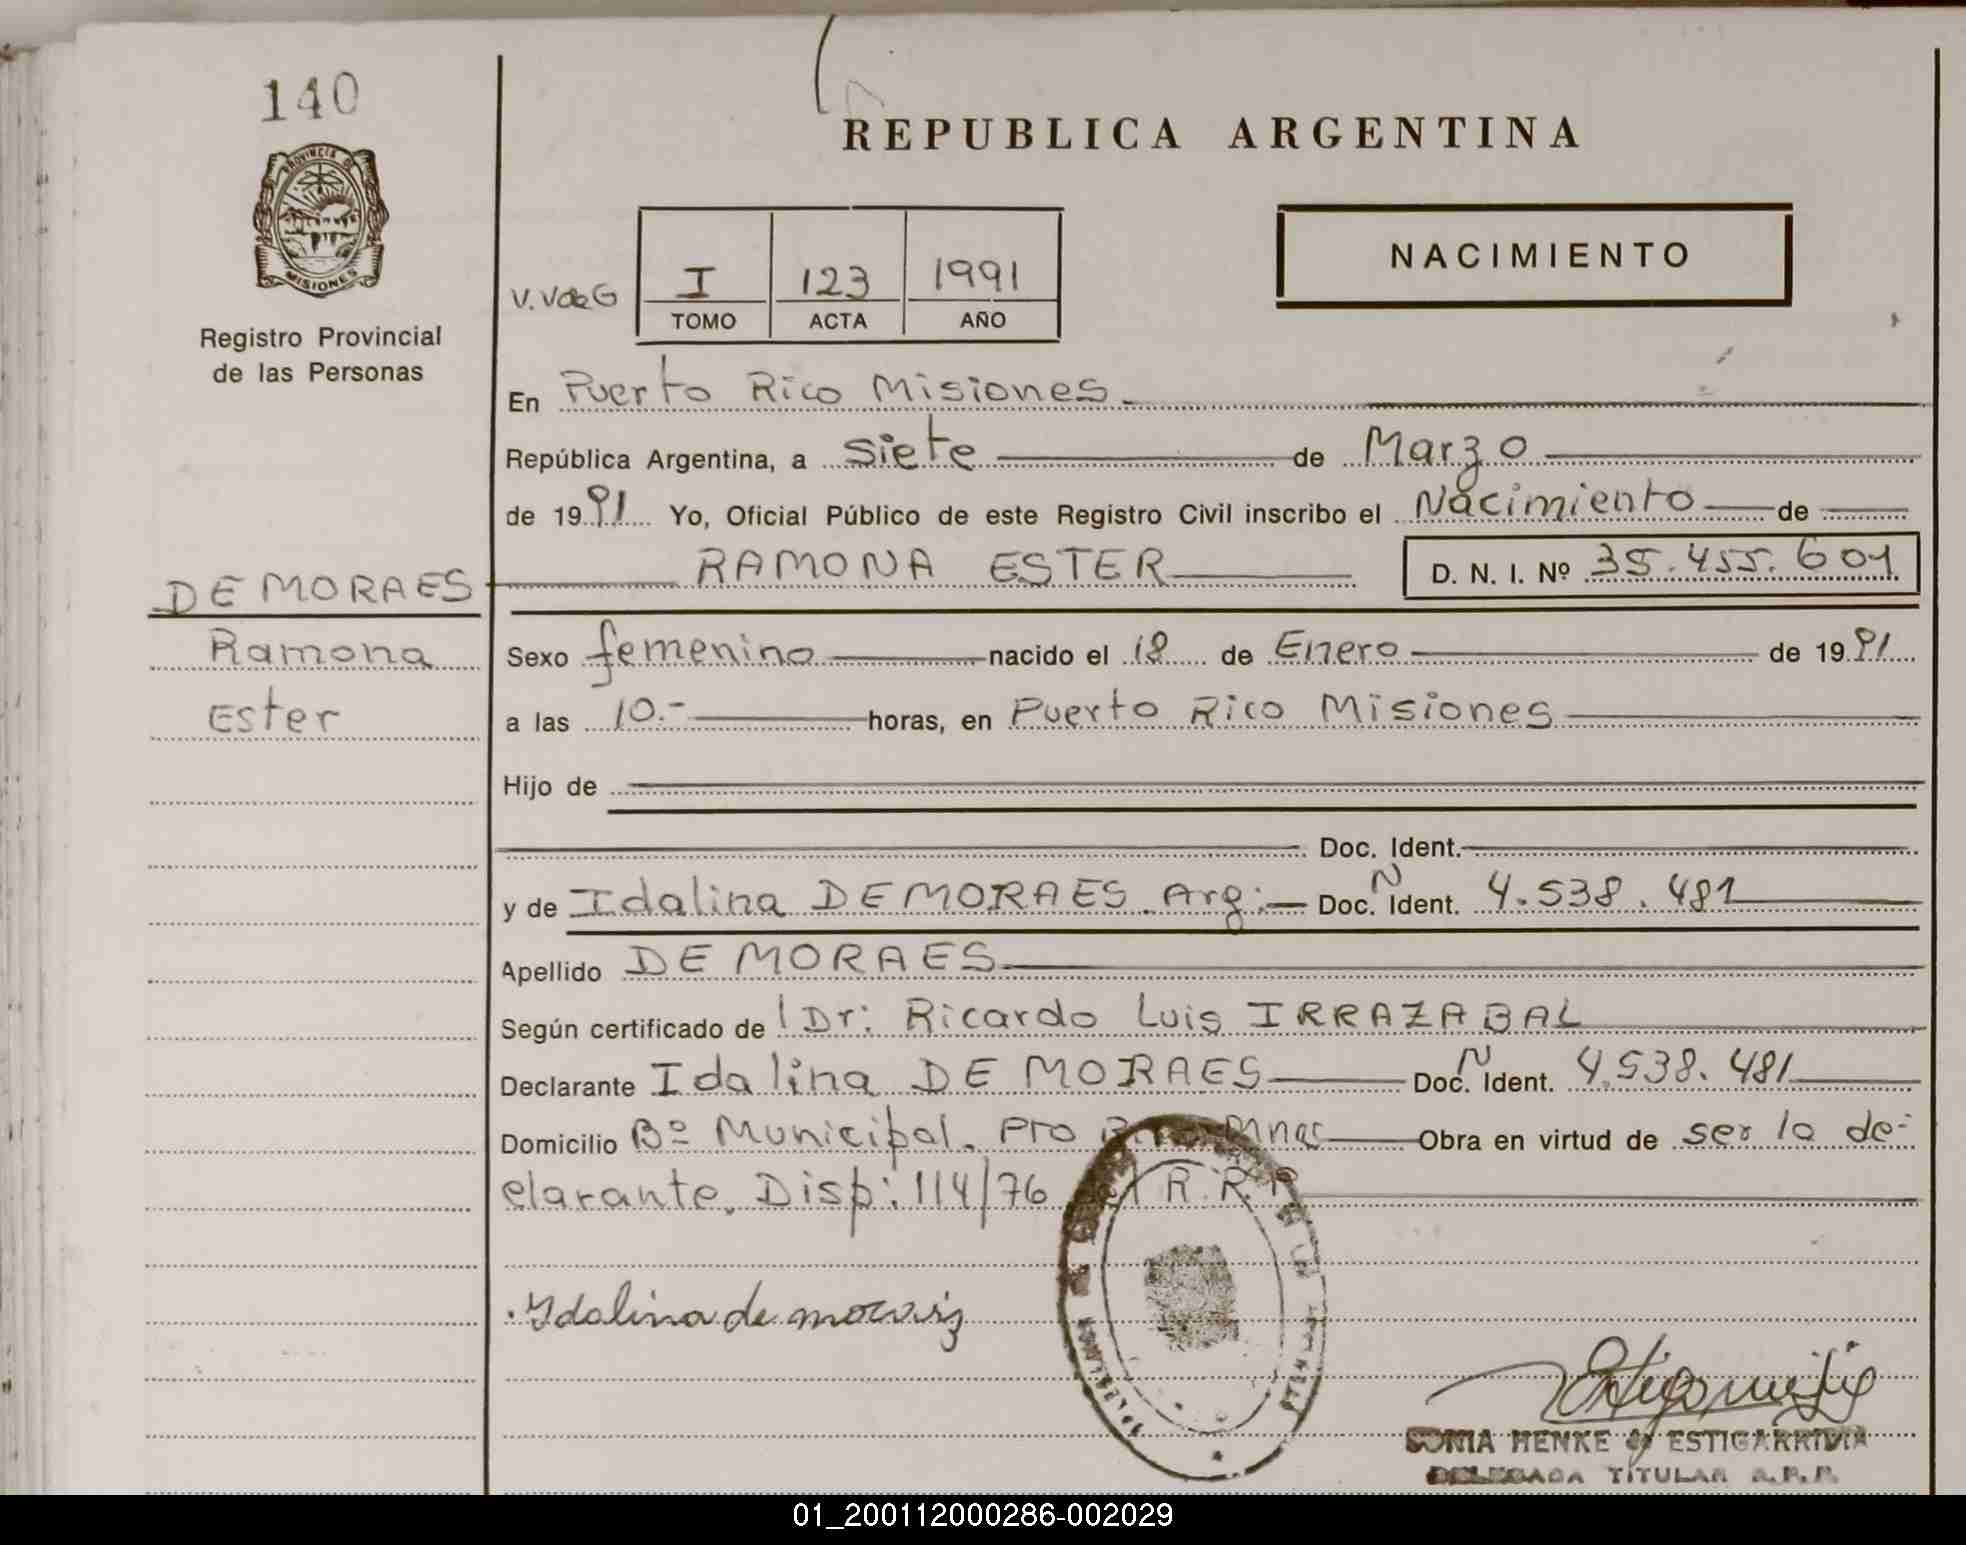 140
REPUBLICA ARGENTINA
PROVINCIA DE MISIONES
Registro Provincial
de las Personas
V. V de G
I 123 1991
TOMO ACTA AÑO
NACIMIENTO
En Puerto Rico Misiones
República Argentina, a siete de Marzo
de 1991 Yo, Oficial Público de este Registro Civil inscribo el Nacimiento de
DE MORAES RAMONA ESTER D. N. I. Nº 35.455.601
Ramona
Ester
Sexo femenino nacido el 18 de Enero de 1991
a las 10.- horas, en Puerto Rico Misiones
Hijo de
Doc. Ident.
y de Idalina DE MORAES. Arg: Doc. N Ident. 4.538.481
Apellido DE MORAES
Según certificado de Dr: Ricardo Luis IRRAZABAL
Declarante Idalina DE MORAES Doc. N Ident. 4.538.481
Domicilio Bº Municipal. Pto Mnes Obra en virtud de ser la de-
clarante. Disp: 114/76 del R.R.P
Idalina de moraiz
SONIA HENKE de ESTIGARRIBIA
DELEGADA TITULAR R.P.P.
01_200112000286-002029